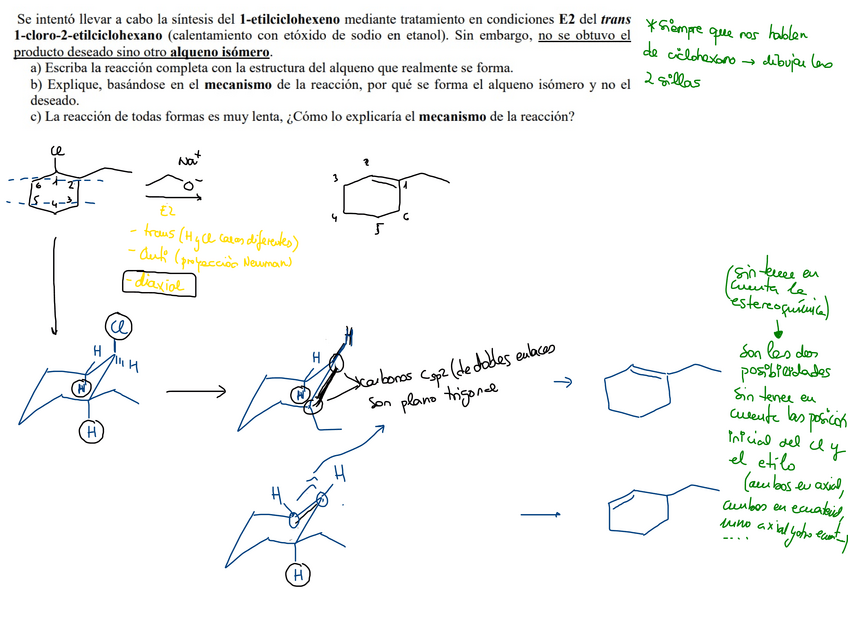 Se intentó llevar a cabo la síntesis del 1-etilciclohexeno mediante tratamiento en condiciones E2 del trans
1-cloro-2-etilciclohexano (calentamiento con etóxido de sodio en etanol). Sin embargo, no se obtuvo el
producto deseado sino otro alqueno isómero.
a) Escriba la reacción completa con la estructura del alqueno que realmente se forma.
b) Explique, basándose en el mecanismo de la reacción, por qué se forma el alqueno isómero y no el
deseado.
c) La reacción de todas formas es muy lenta, ¿Cómo lo explicaría el mecanismo de la reacción?
*Siempre que nos hablen
de ciclohexano → dibujar las
2 sillas
Cl
6 1 2
5 4 3
Na+
O-
E2
- trans (H y Cl caras diferentes)
- Anti (proyección Newman)
- diaxial
3 2 1
4 5 6
Cl
H
H
H
H
H
H
H
carbonos Csp2 (de dobles enlaces
son plano trigonal
H
H
H
(sin tener en
cuenta la
estereoquímica)
Son las dos
posibilidades
Sin tener en
cuenta las posición
inicial del Cl y
el etilo
(ambos en axial,
ambos en ecuatorial,
uno axial y otro ecuat-)
....